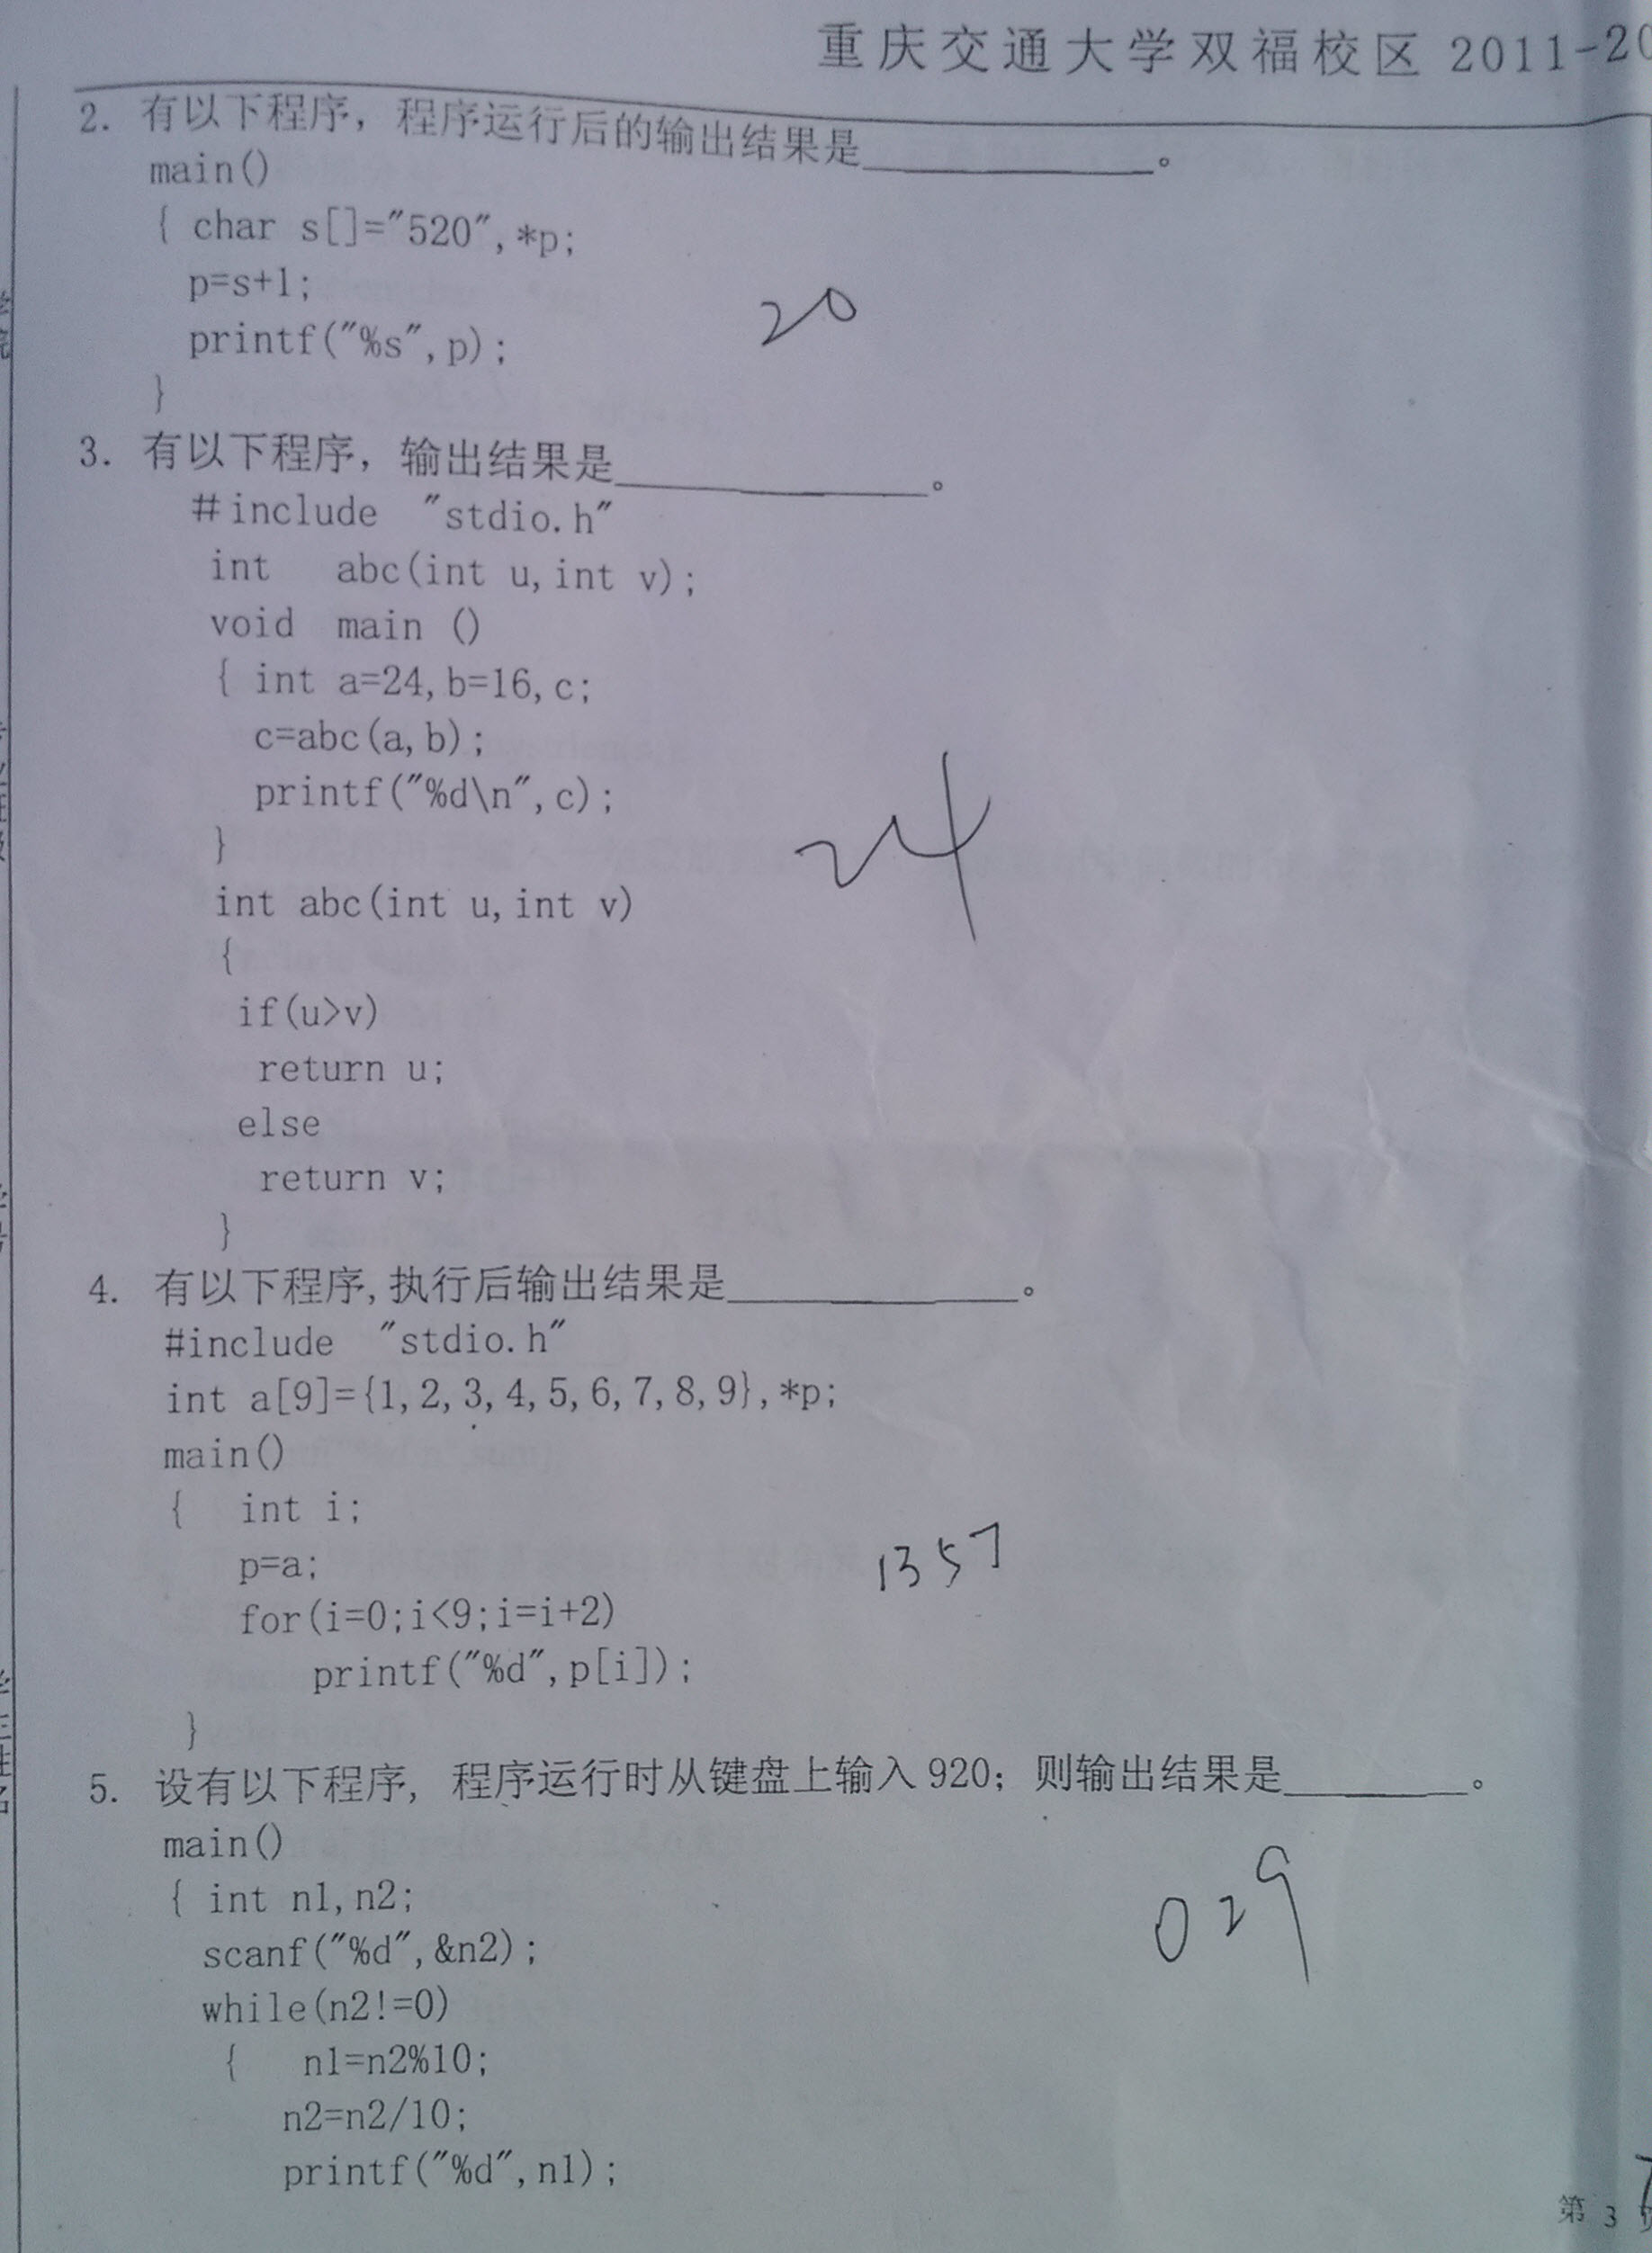 重庆交通大学双福校区 2011-20
2. 有以下程序，程序运行后的输出结果是____________。
main()
{ char s[]="520",*p;
p=s+1;
printf("%s",p);
20
}
3. 有以下程序，输出结果是____________。
#include "stdio.h"
int abc(int u,int v);
void main ()
{ int a=24,b=16,c;
c=abc(a,b);
printf("%d\n",c);
}
24
int abc(int u,int v)
{
if(u>v)
return u;
else
return v;
}
4. 有以下程序,执行后输出结果是____________。
#include "stdio.h"
int a[9]={1,2,3,4,5,6,7,8,9},*p;
main()
{ int i;
p=a;
1357
for(i=0;i<9;i=i+2)
printf("%d",p[i]);
}
5. 设有以下程序，程序运行时从键盘上输入 920；则输出结果是________。
main()
{ int n1,n2;
029
scanf("%d",&n2);
while(n2!=0)
{ n1=n2%10;
n2=n2/10;
printf("%d",n1);
第 3